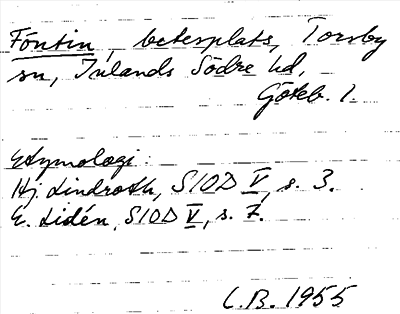 Föntin, betesplats, Torsby
sn, Inlands Södre hd,
Göteb. l.
Etymologi:
Hj. Lindroth, SIOD V, s. 3.
E. Lidén, SIOD V, s. 7.
C.B. 1955